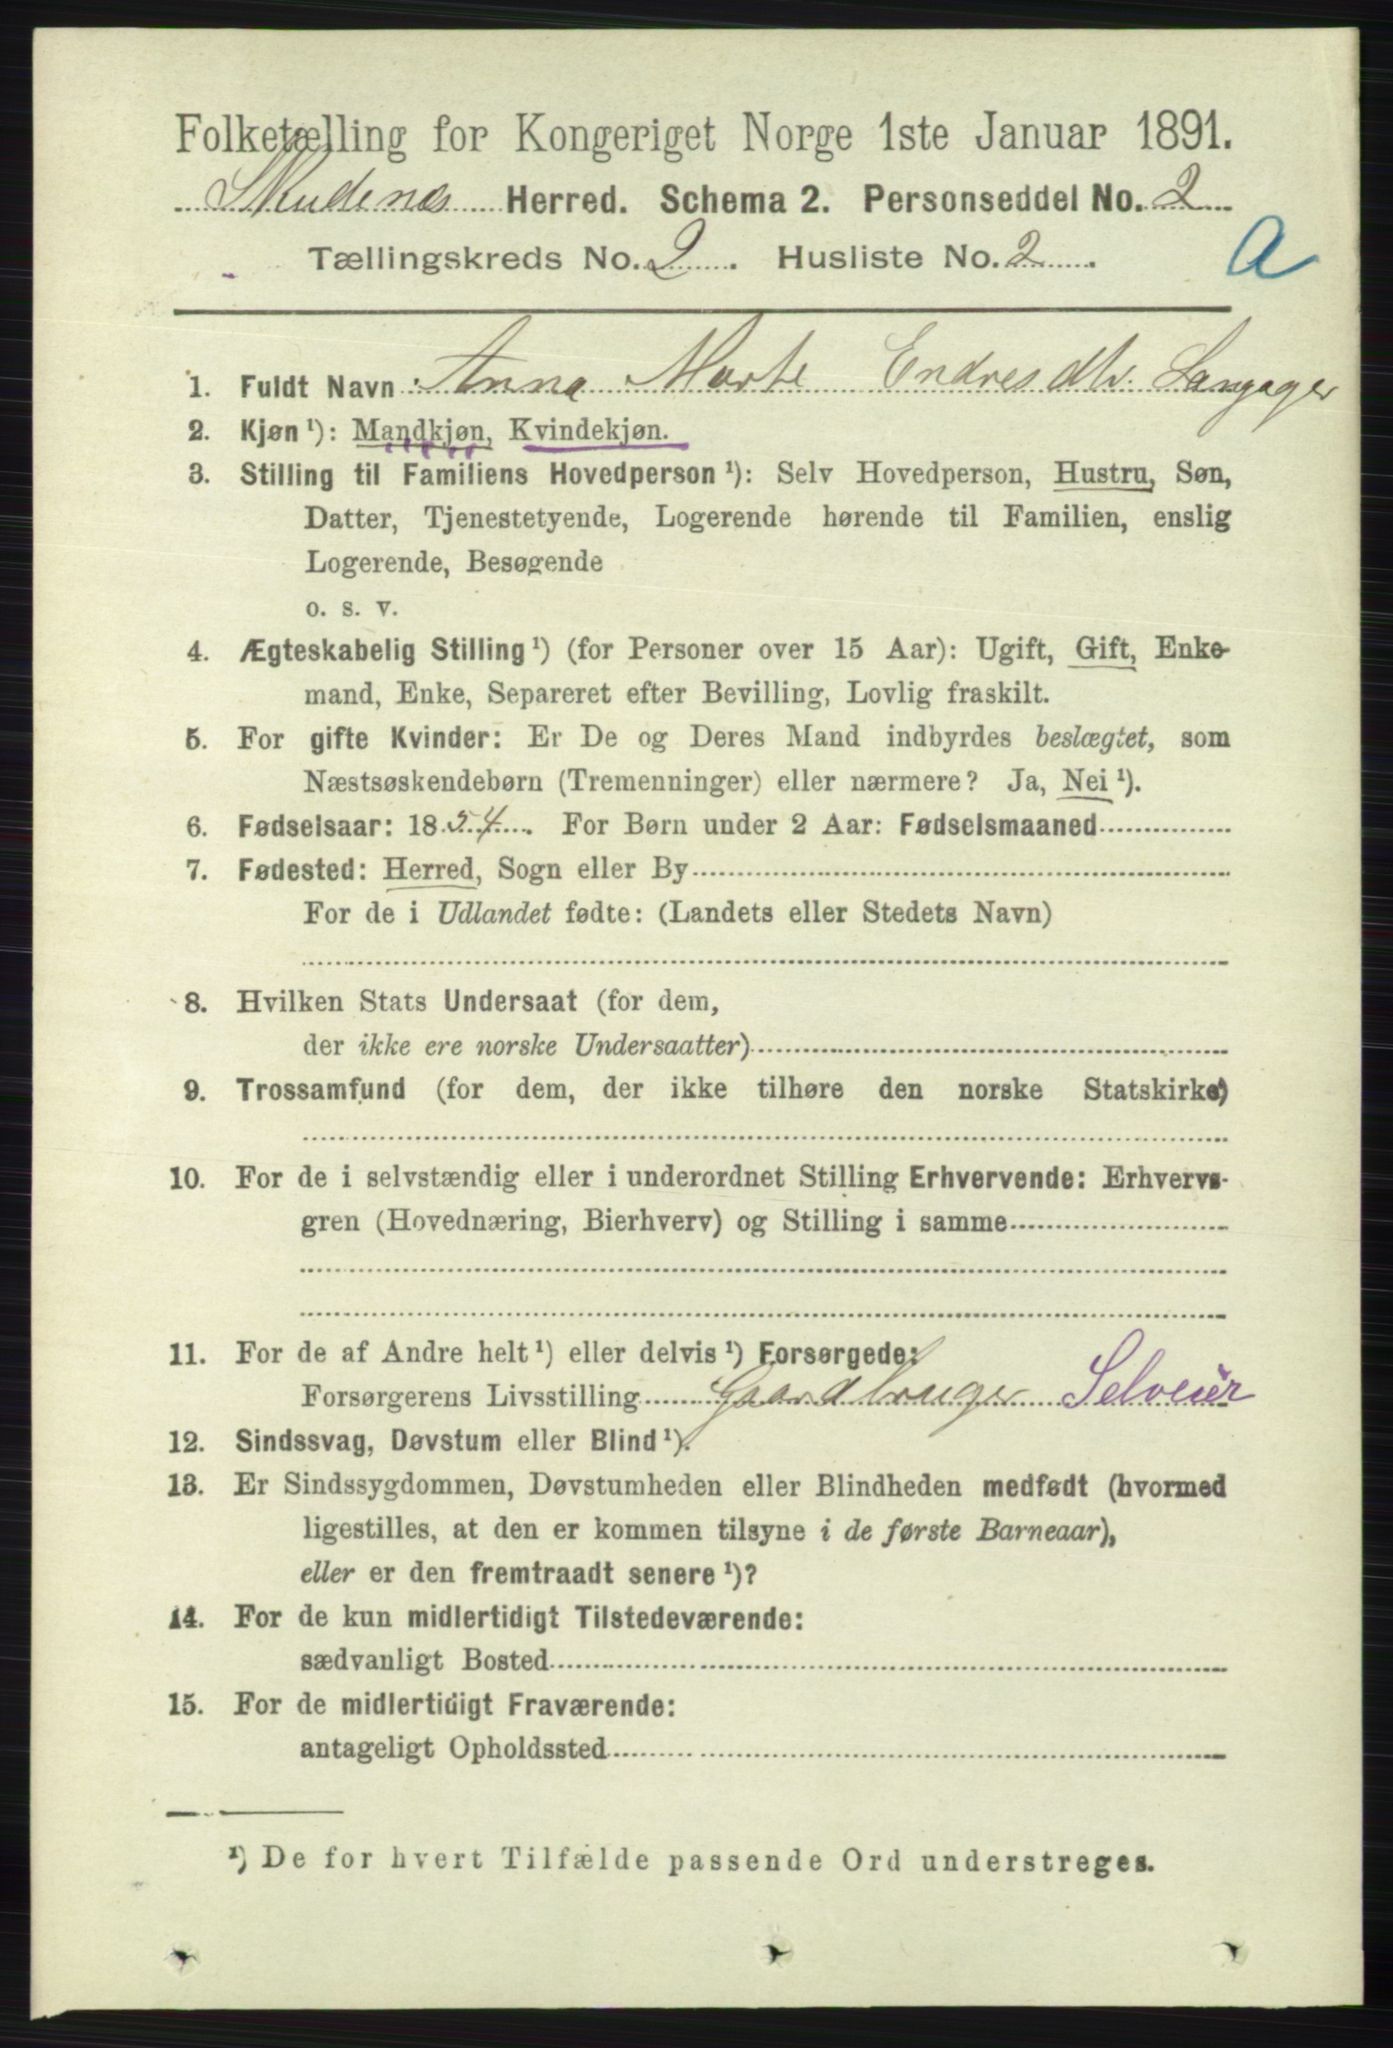 Folketælling for Kongeriget Norge 1ste Januar 1891.
Skudenes Herred. Schema 2. Personseddel No. 2
Tællingskreds No. 2. Husliste No. 2.
a
1. Fuldt Navn Anna Marte Endresdtr. Langager
2. Kjøn ¹): Mandkjøn, Kvindekjøn.
3. Stilling til Familiens Hovedperson ¹): Selv Hovedperson, Hustru, Søn,
Datter, Tjenestetyende, Logerende hørende til Familien, enslig
Logerende, Besøgende
o. s. v.
4. Ægteskabelig Stilling ¹) (for Personer over 15 Aar): Ugift, Gift, Enke-
mand, Enke, Separeret efter Bevilling, Lovlig fraskilt.
5. For gifte Kvinder: Er De og Deres Mand indbyrdes beslægtet, som
Næstsøskendebørn (Tremenninger) eller nærmere? Ja, Nei ¹).
6. Fødselsaar: 1854. For Børn under 2 Aar: Fødselsmaaned
7. Fødested: Herred, Sogn eller By
For de i Udlandet fødte: (Landets eller Stedets Navn)
8. Hvilken Stats Undersaat (for dem,
der ikke ere norske Undersaatter)
9. Trossamfund (for dem, der ikke tilhøre den norske Statskirke)
10. For de i selvstændig eller i underordnet Stilling Erhvervende: Erhvervs-
gren (Hovednæring, Bierhverv) og Stilling i samme
11. For de af Andre helt ¹) eller delvis ¹) Forsørgede:
Forsørgerens Livsstilling Gaardbruger Selveier
12. Sindssvag, Døvstum eller Blind ¹).
13. Er Sindssygdommen, Døvstumheden eller Blindheden medfødt (hvormed
ligestilles, at den er kommen tilsyne i de første Barneaar),
eller er den fremtraadt senere ¹)?
14. For de kun midlertidigt Tilstedeværende:
sædvanligt Bosted
15. For de midlertidigt Fraværende:
antageligt Opholdssted
¹) De for hvert Tilfælde passende Ord understreges.